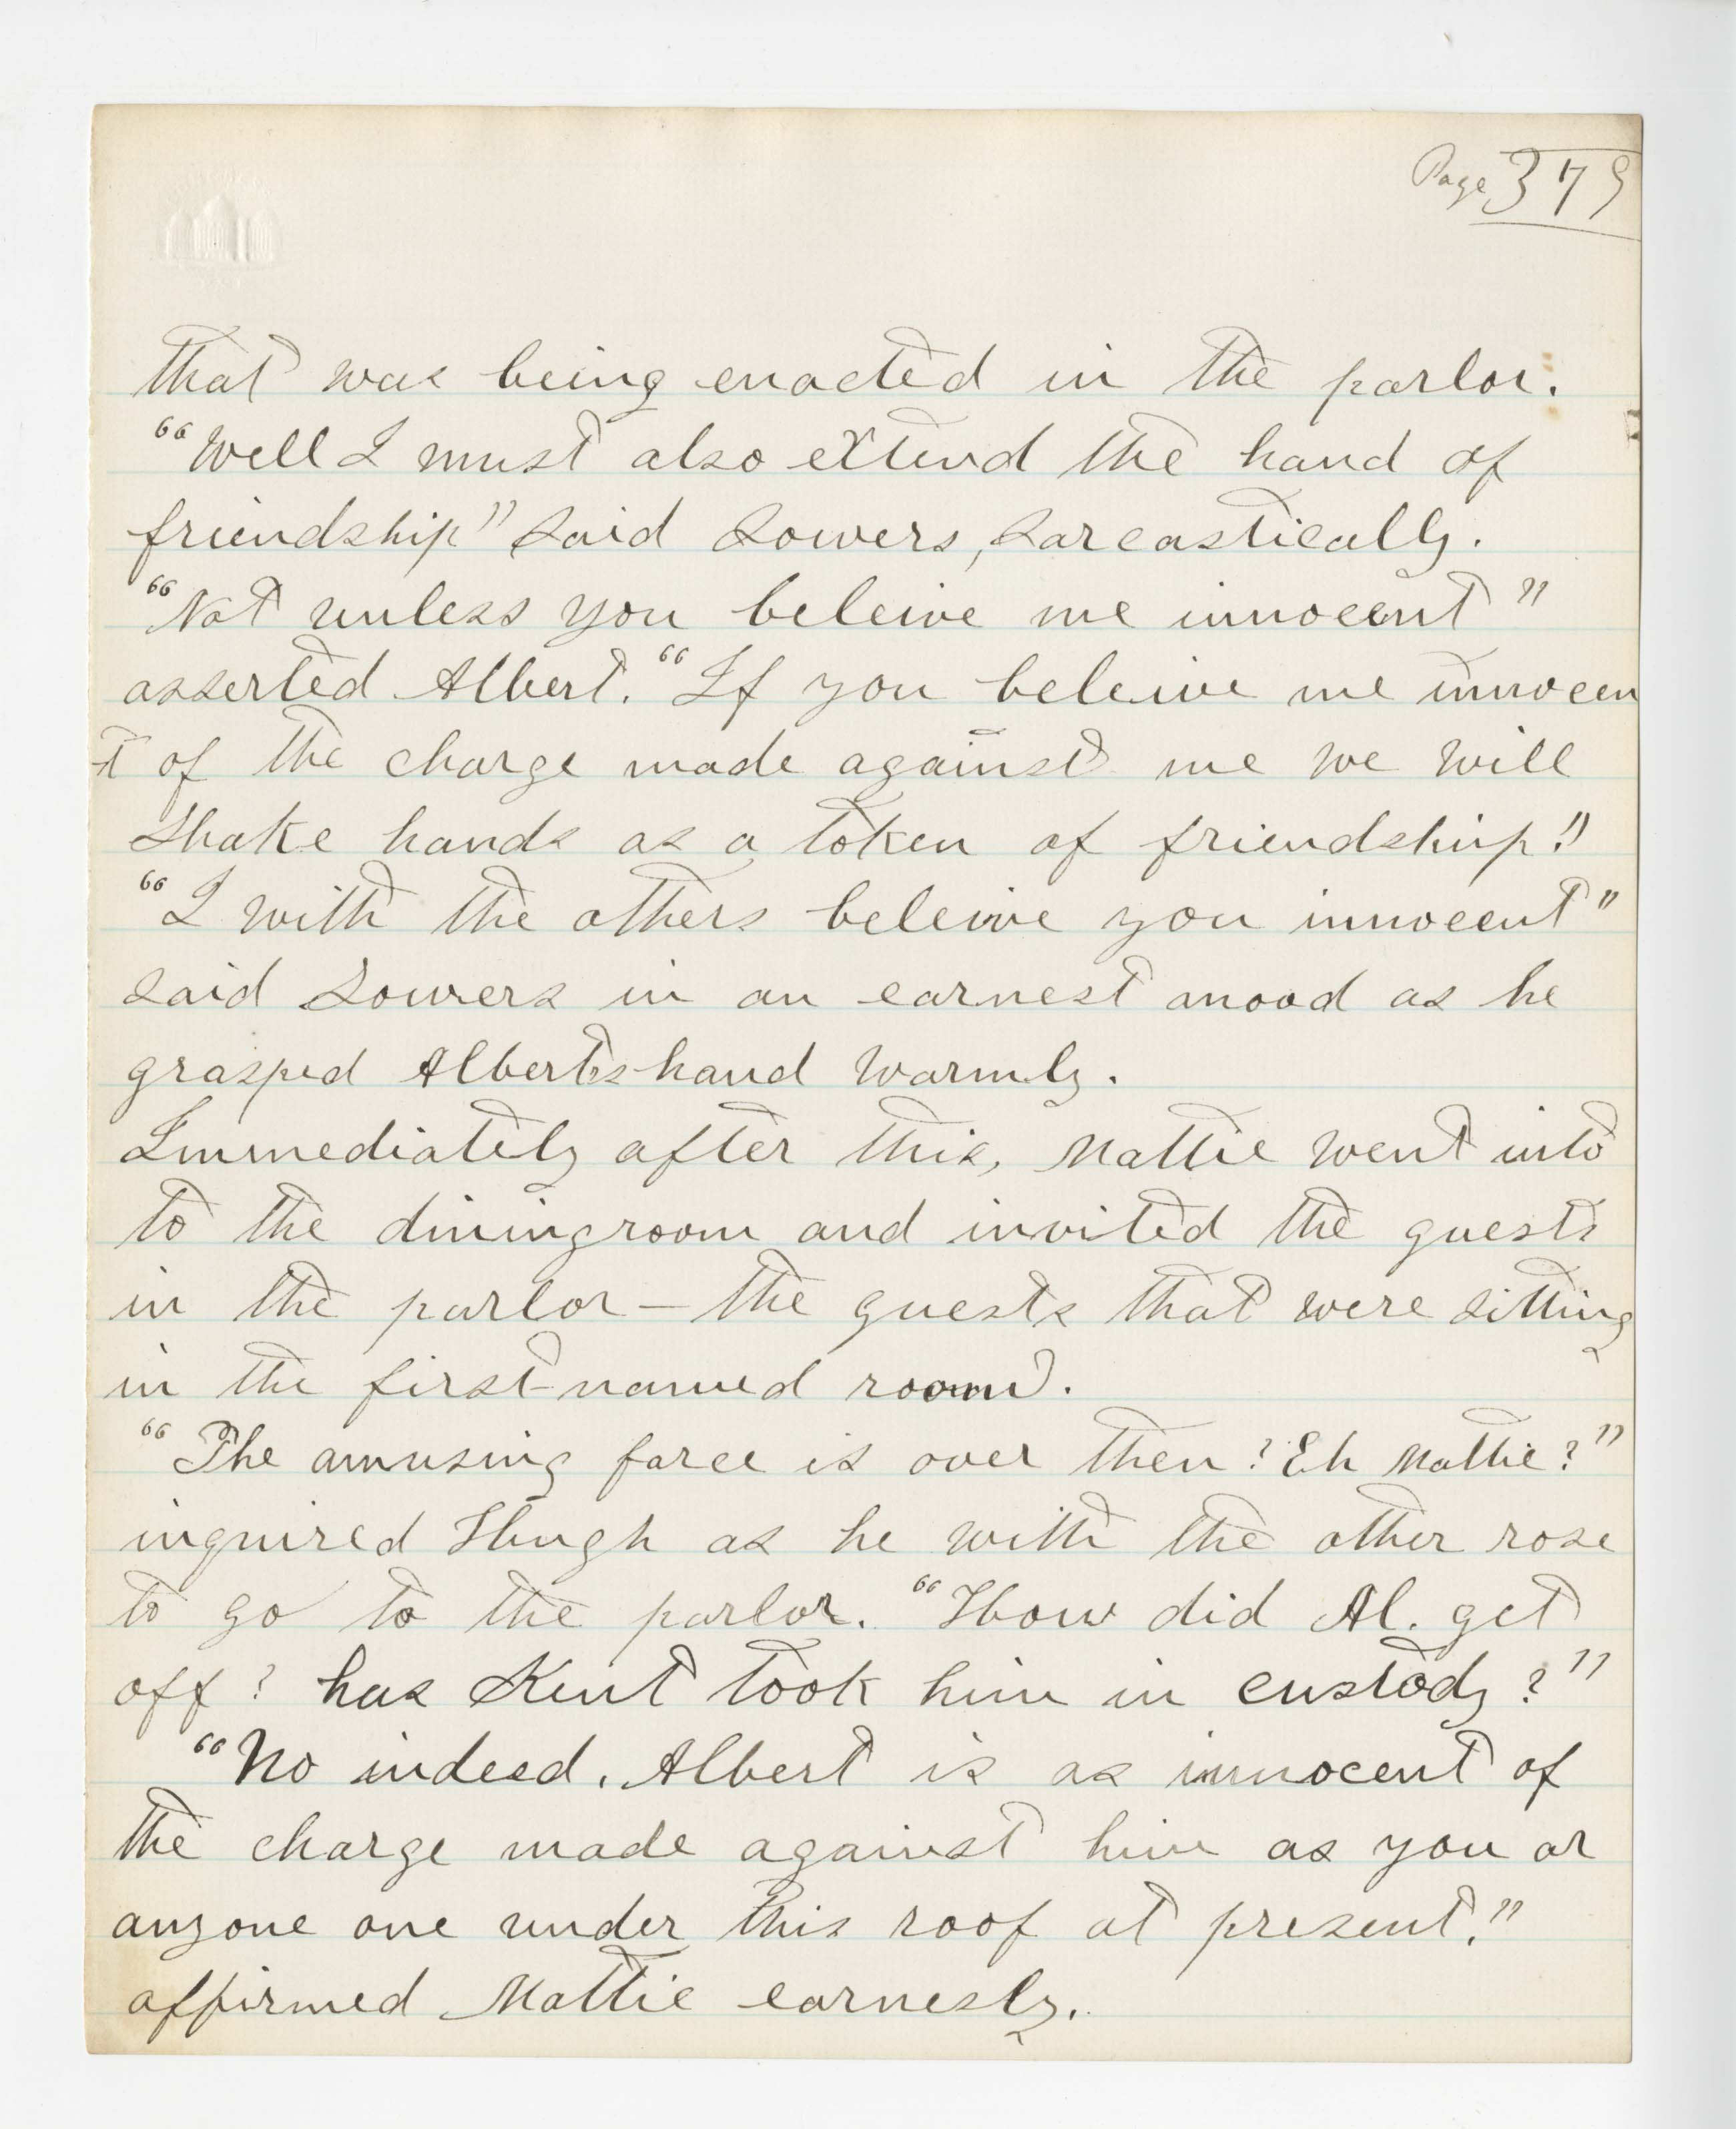 Page 379
that was being enacted in the parlor.
"Well I must also extend the hand of
friendship" said Sowers, sarcastically.
"Not unless you beleive me innocent"
asserted Albert. "If you beleive me innocen
-t of the charge made against me we will
shake hands as a token of friendship!"
"I with the others beleive you innocent"
said Sowers in an earnest mood as he
grasped Albert's hand warmly.
Immediately after this, Mattie went into
to the diningroom and invited the guests
in the parlor — the guests that were sitting
in the first-named room.
"The amusing farce is over then? Eh Mattie?"
inquired Hugh as he with the other rose
to go to the parlor. "How did Al. get
off? has Kent took him in custody?"
"No indeed. Albert is as innocent of
the charge made against him as you or
anyone one under this roof at present."
affirmed Mattie earnesly.